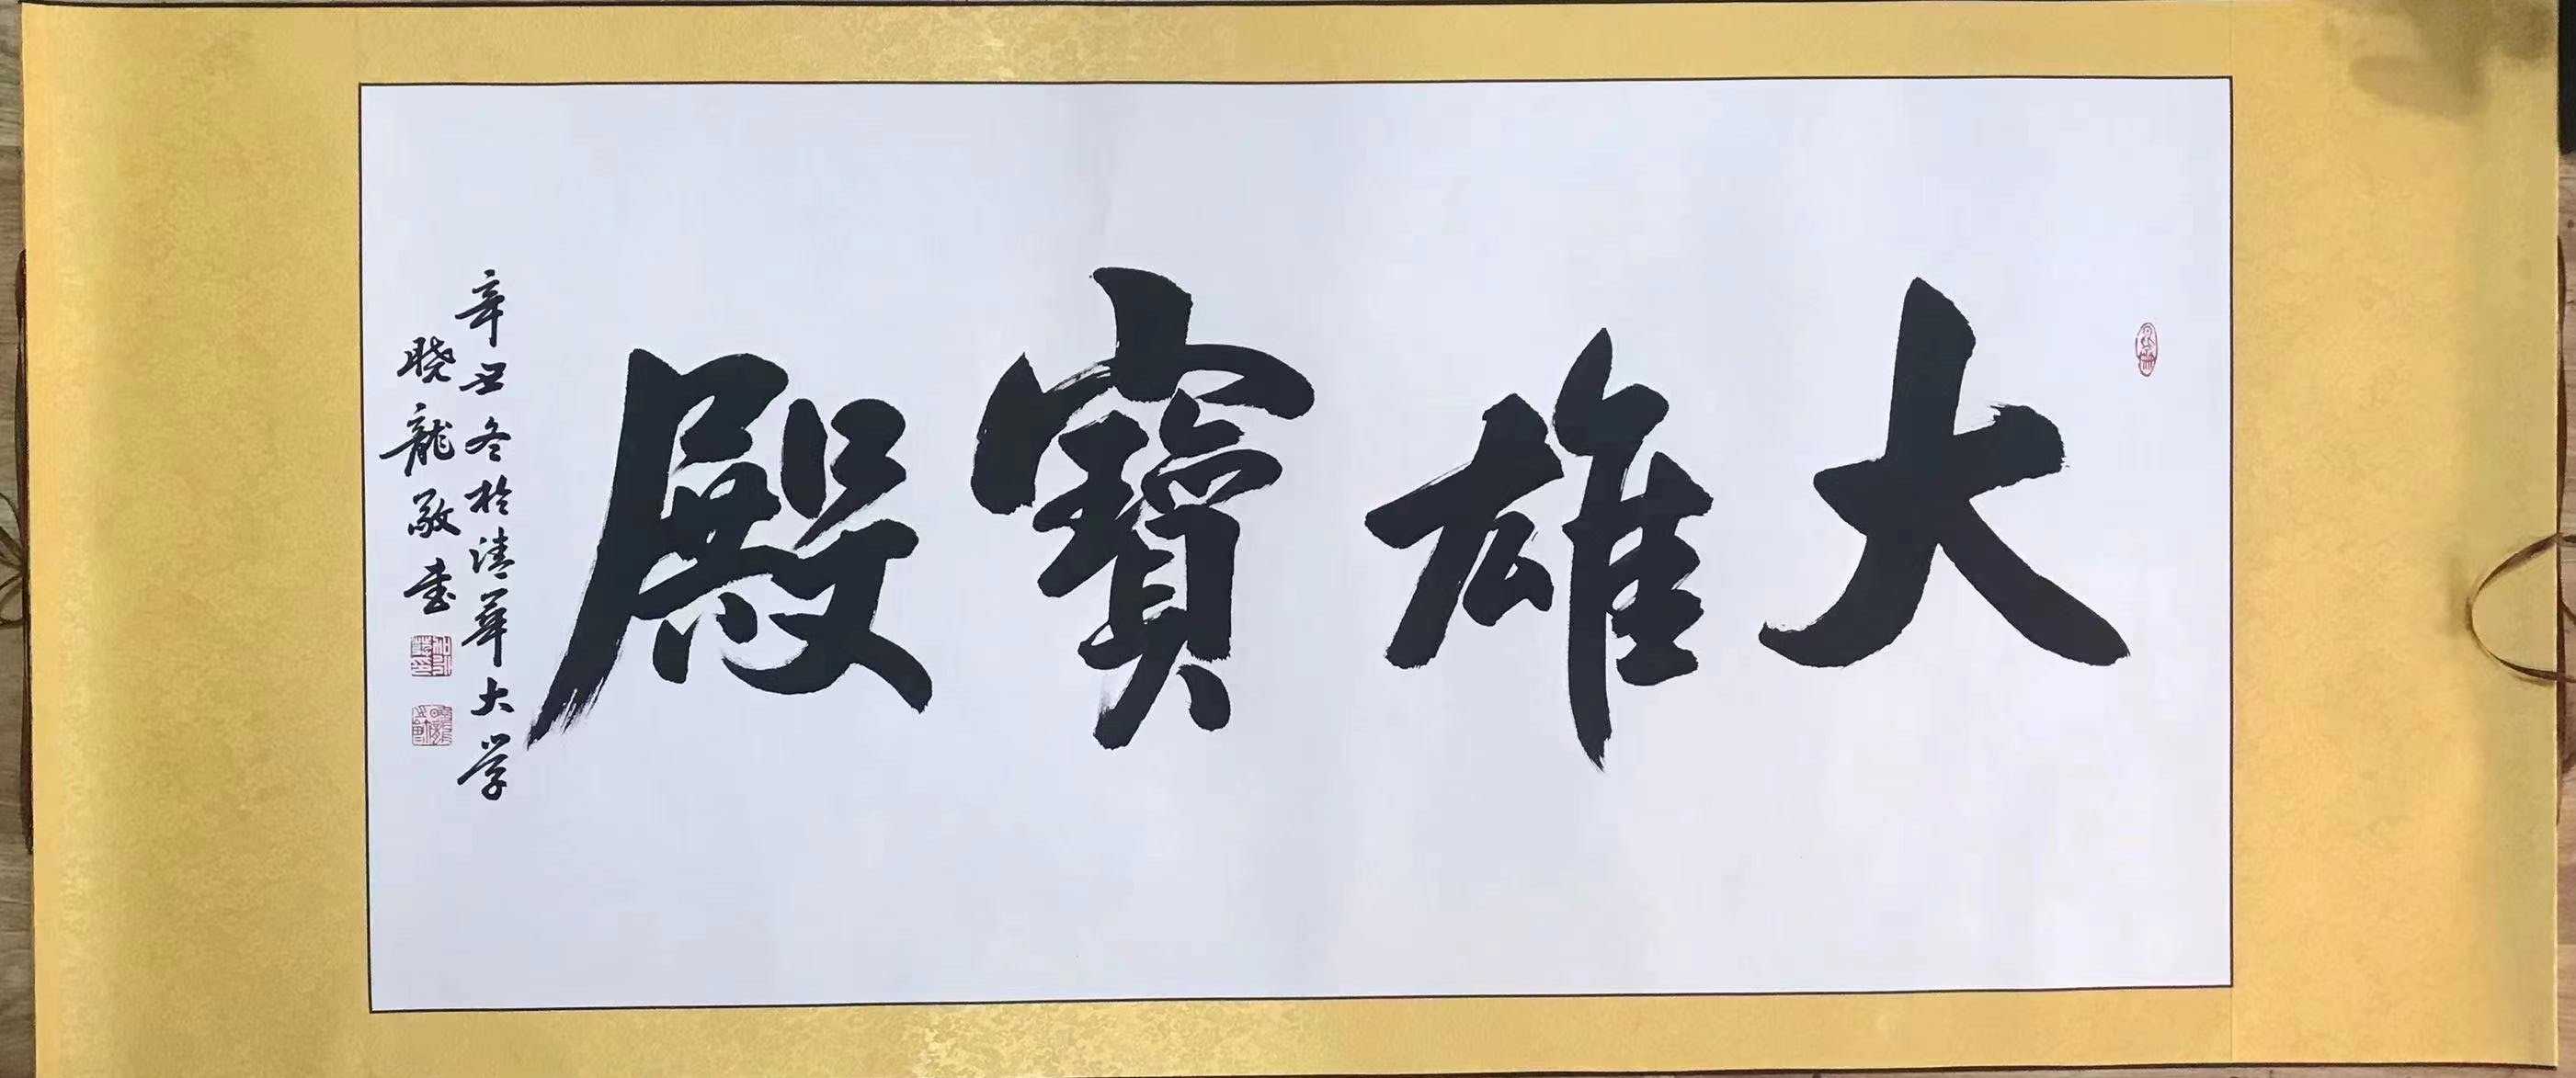 大雄寶殿
辛丑冬於清華大学
晓龍敬书